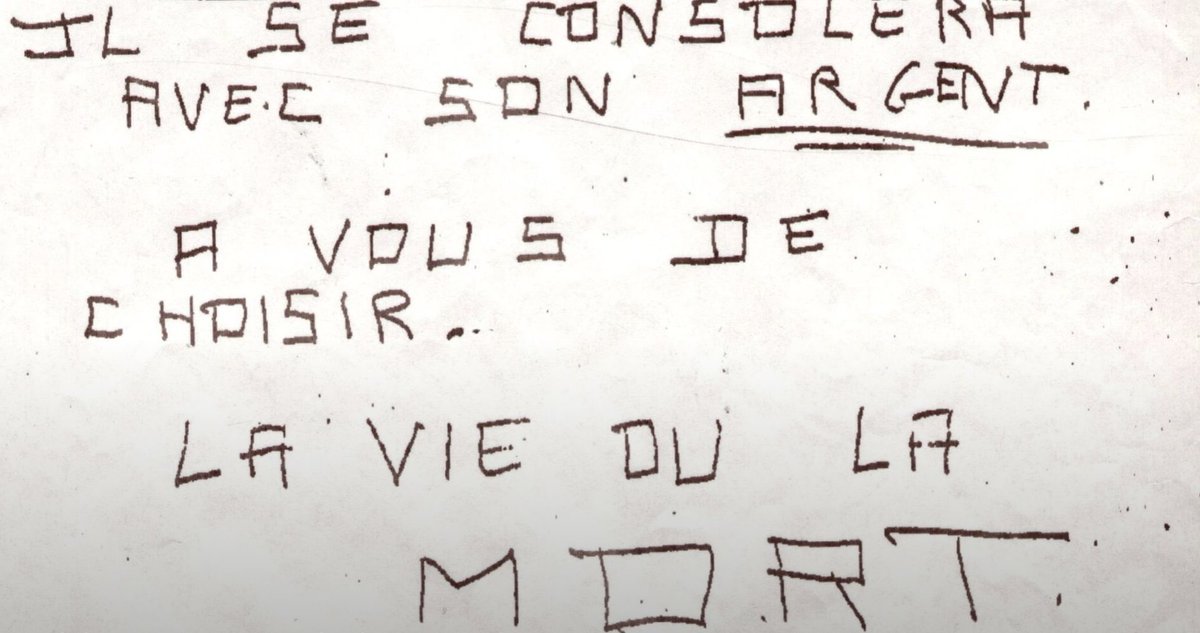 IL SE CONSOLERA
AVEC SON ARGENT.
A VOUS DE
CHOISIR..
LA VIE OU LA
MORT.